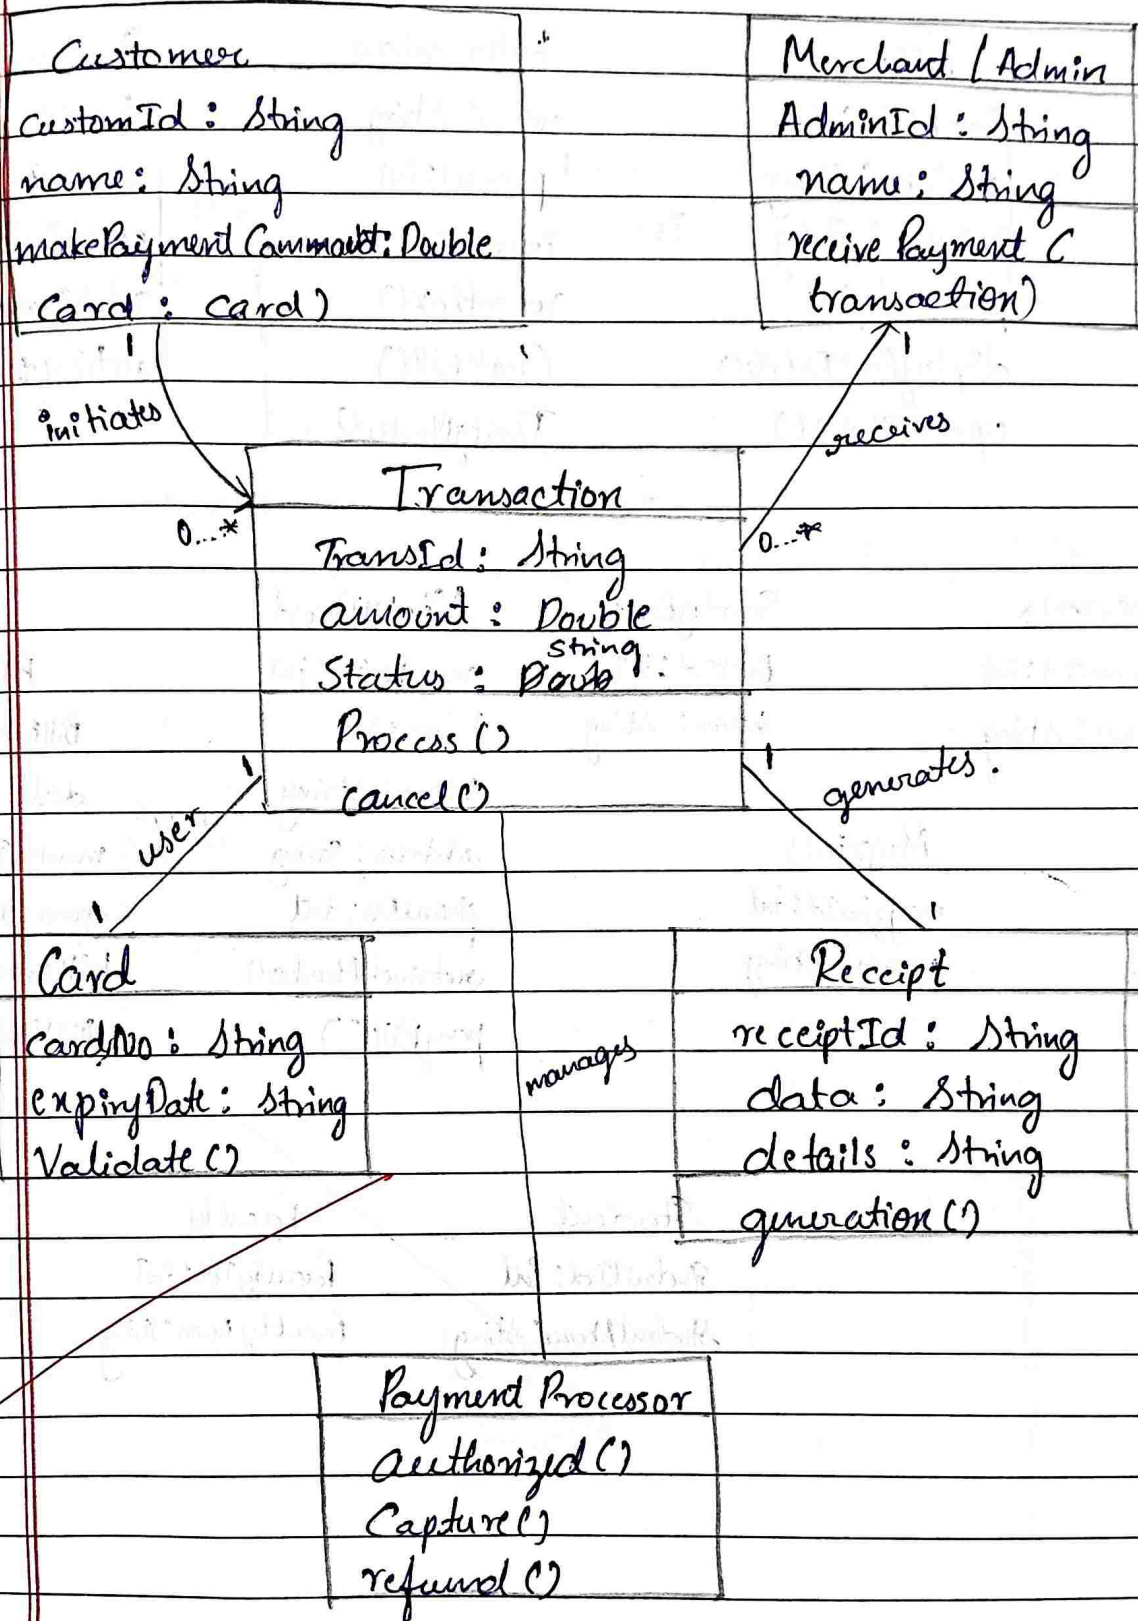 Customer
CustomId : String
name : String
makePayment (ammount : Double
Card : Card)
1
initiates
0...*
Merchant / Admin
AdminId : String
name : String
receive Payment (
transaction)
1
receives
0...*
Transaction
TransId : String
amount : Double
String
Status :
Process ()
cancel ()
1
user
1
1
generates.
1
Card
cardNo : String
expiryDate : String
Validate ()
manages
Receipt
receiptId : String
data : String
details : String
generation ()
Payment Processor
authorized ()
Capture ()
refund ()